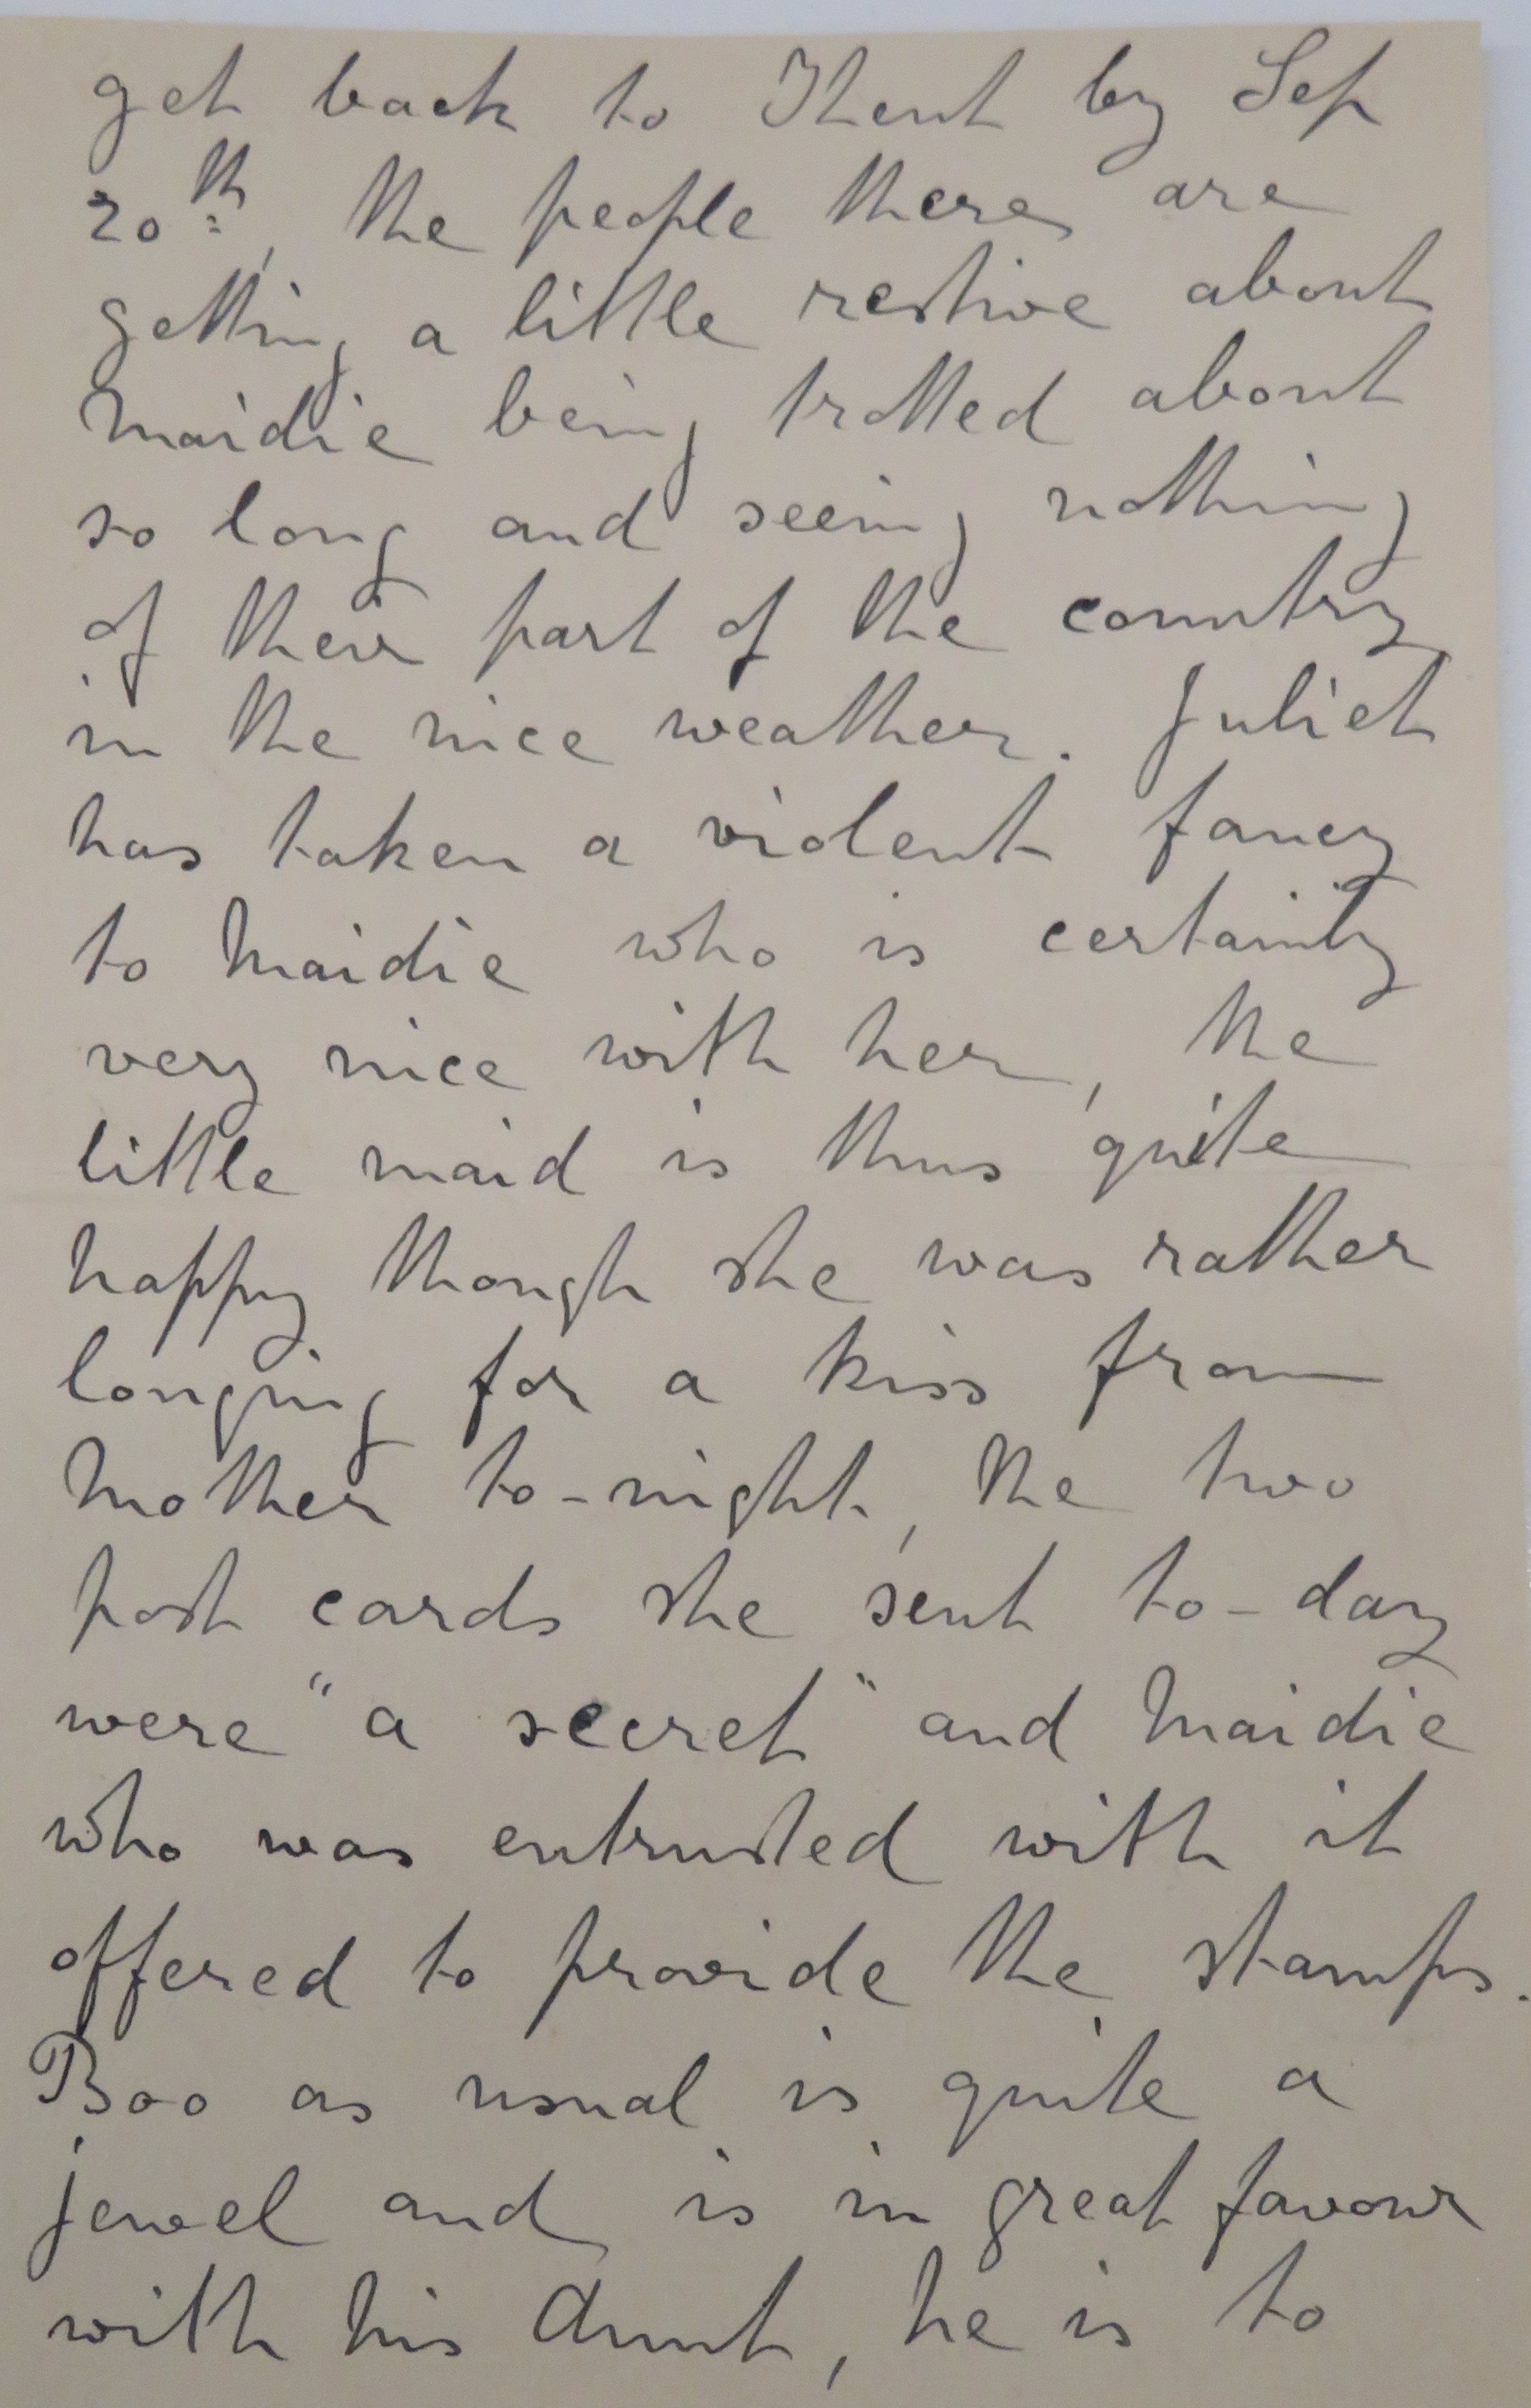 get back to Ghent by Sep
20th, the people there are
getting a little restive about
Maidie being trotted about
so long and seeing nothing
of their part of the country
in the nice weather. Juliet
has taken a violent fancy
to Maidie who is certainly
very nice with her, the
little maid is thus quite
happy though she was rather
longing for a kiss from
Mother to-night, the two
post cards she sent to-day
were "a secret" and Maidie
who was entrusted with it
offered to provide the stamps.
Boo as usual is quite a
jewel and is in great favour
with his Aunt, he is to